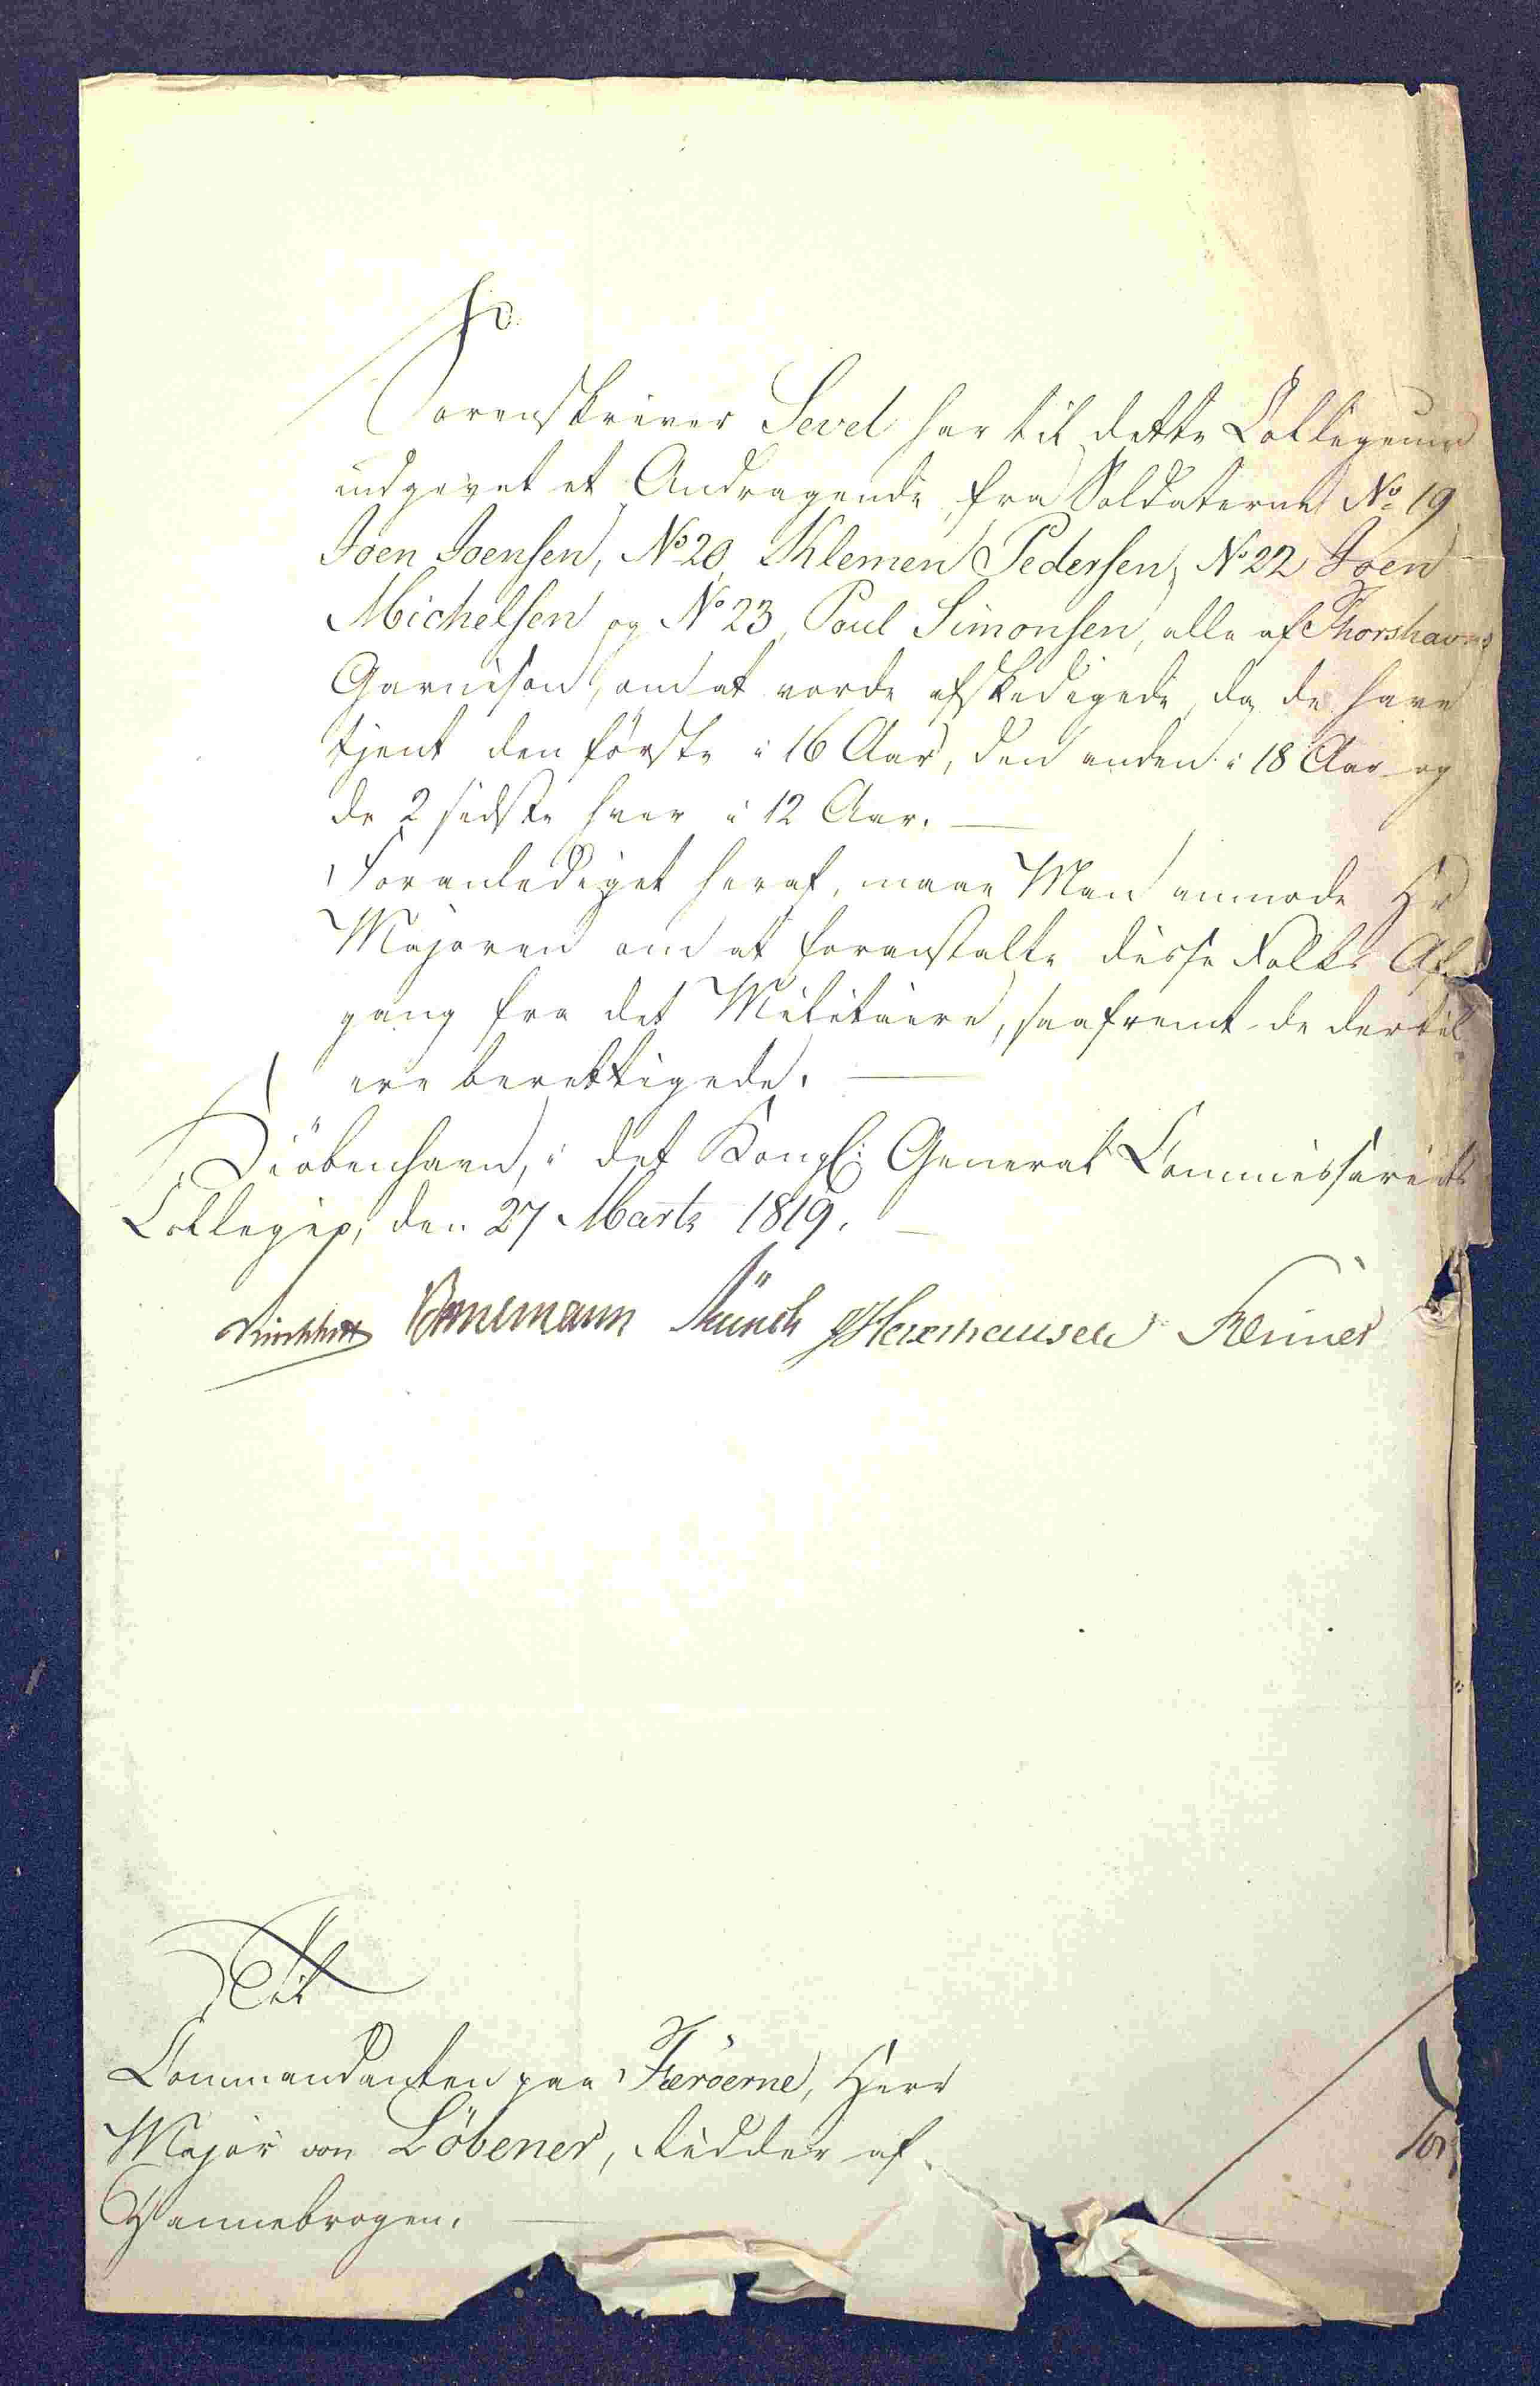 Sorenskriver Sevel har til dette Collegium
indgivet et Andragende fra Soldaterne No 19
Joen Joensen, No 20 Klemen Pedersen, No 22 Joen
Michelsen og No 23 Poul Simonsen, alle af Thorshavns
Garnison, om at vorde afskedigede, da de have
tjent den förste i 16 Aar, den anden i 18 Aar og
de 2 sidste hver i 12 Aar. —
Foranlediget heraf, maae Man anmode Hr
Majoren om at foranstalte disse Folks Af-
gang fra det Militaire, saafremt de dertil
ere berettigede. —
Kiöbenhavn, i det Kongl: General Commissariats
Collegio, den 27 Marts 1819. —
Bornemann Münch Haxthausen
Til
Commandanten paa Færöerne, Herr
Major von Löbener, Ridder af
Dannebrogen. —